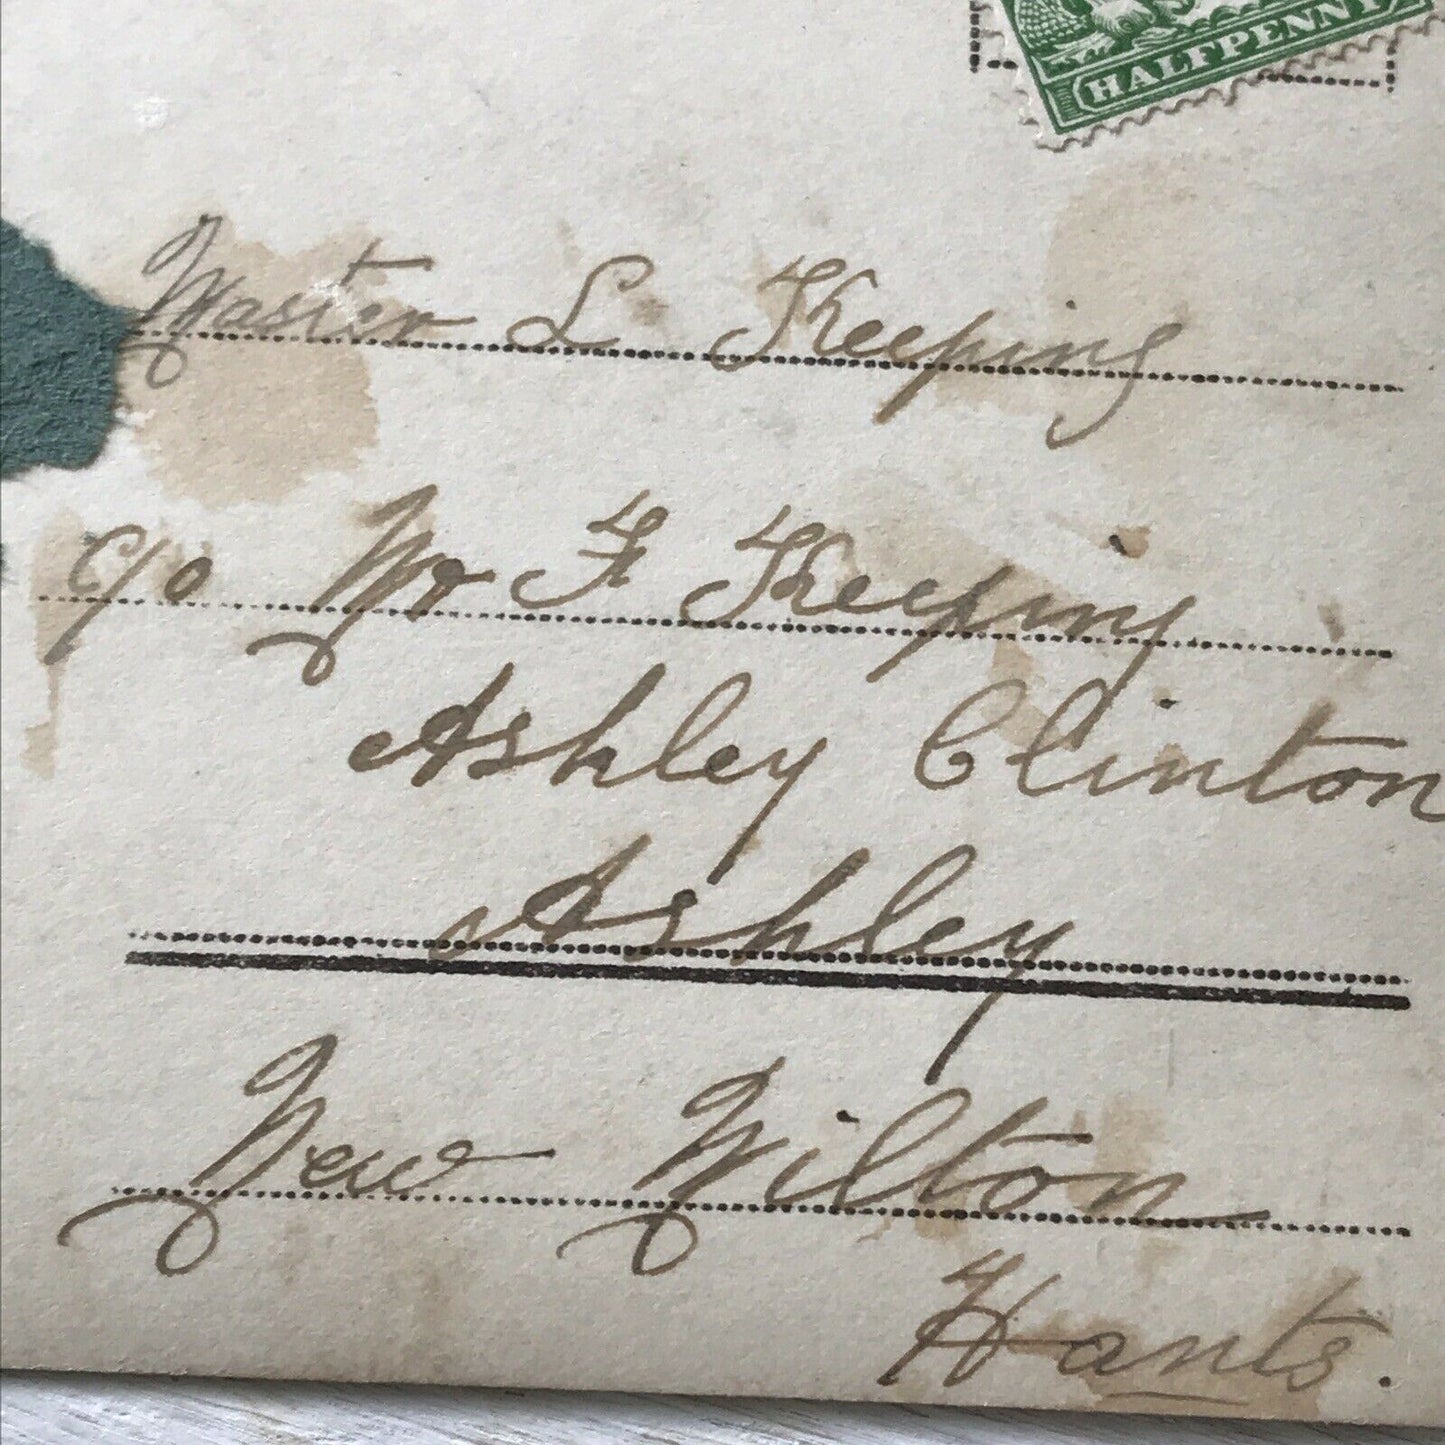 HALFPENNY
Master L Keeping
c/o Mr F Keeping
Ashley Clinton
Ashley
New Milton
Hants.